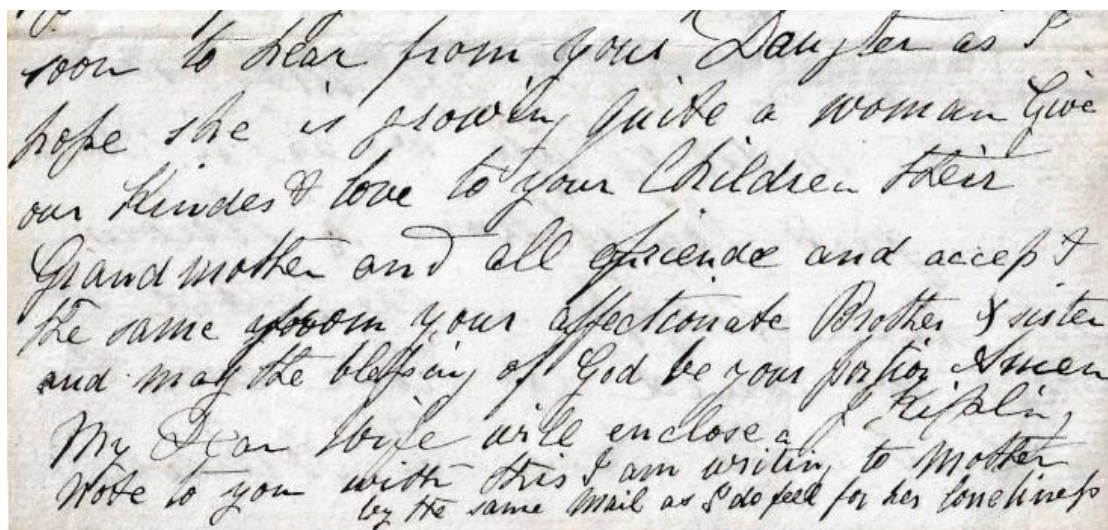 soon to hear from your Daugter as I
hope she is growing quite a woman Give
our Kindest love to your Children their
Grandmother and all friends and accept
the same from your affectionate Brother & sister
and may the blessing of God be your portion Amen
J Kipling
My Dear wife will enclose a
Note to you with this I am writing to Mother
by the same Mail as I do feel for her loneliness